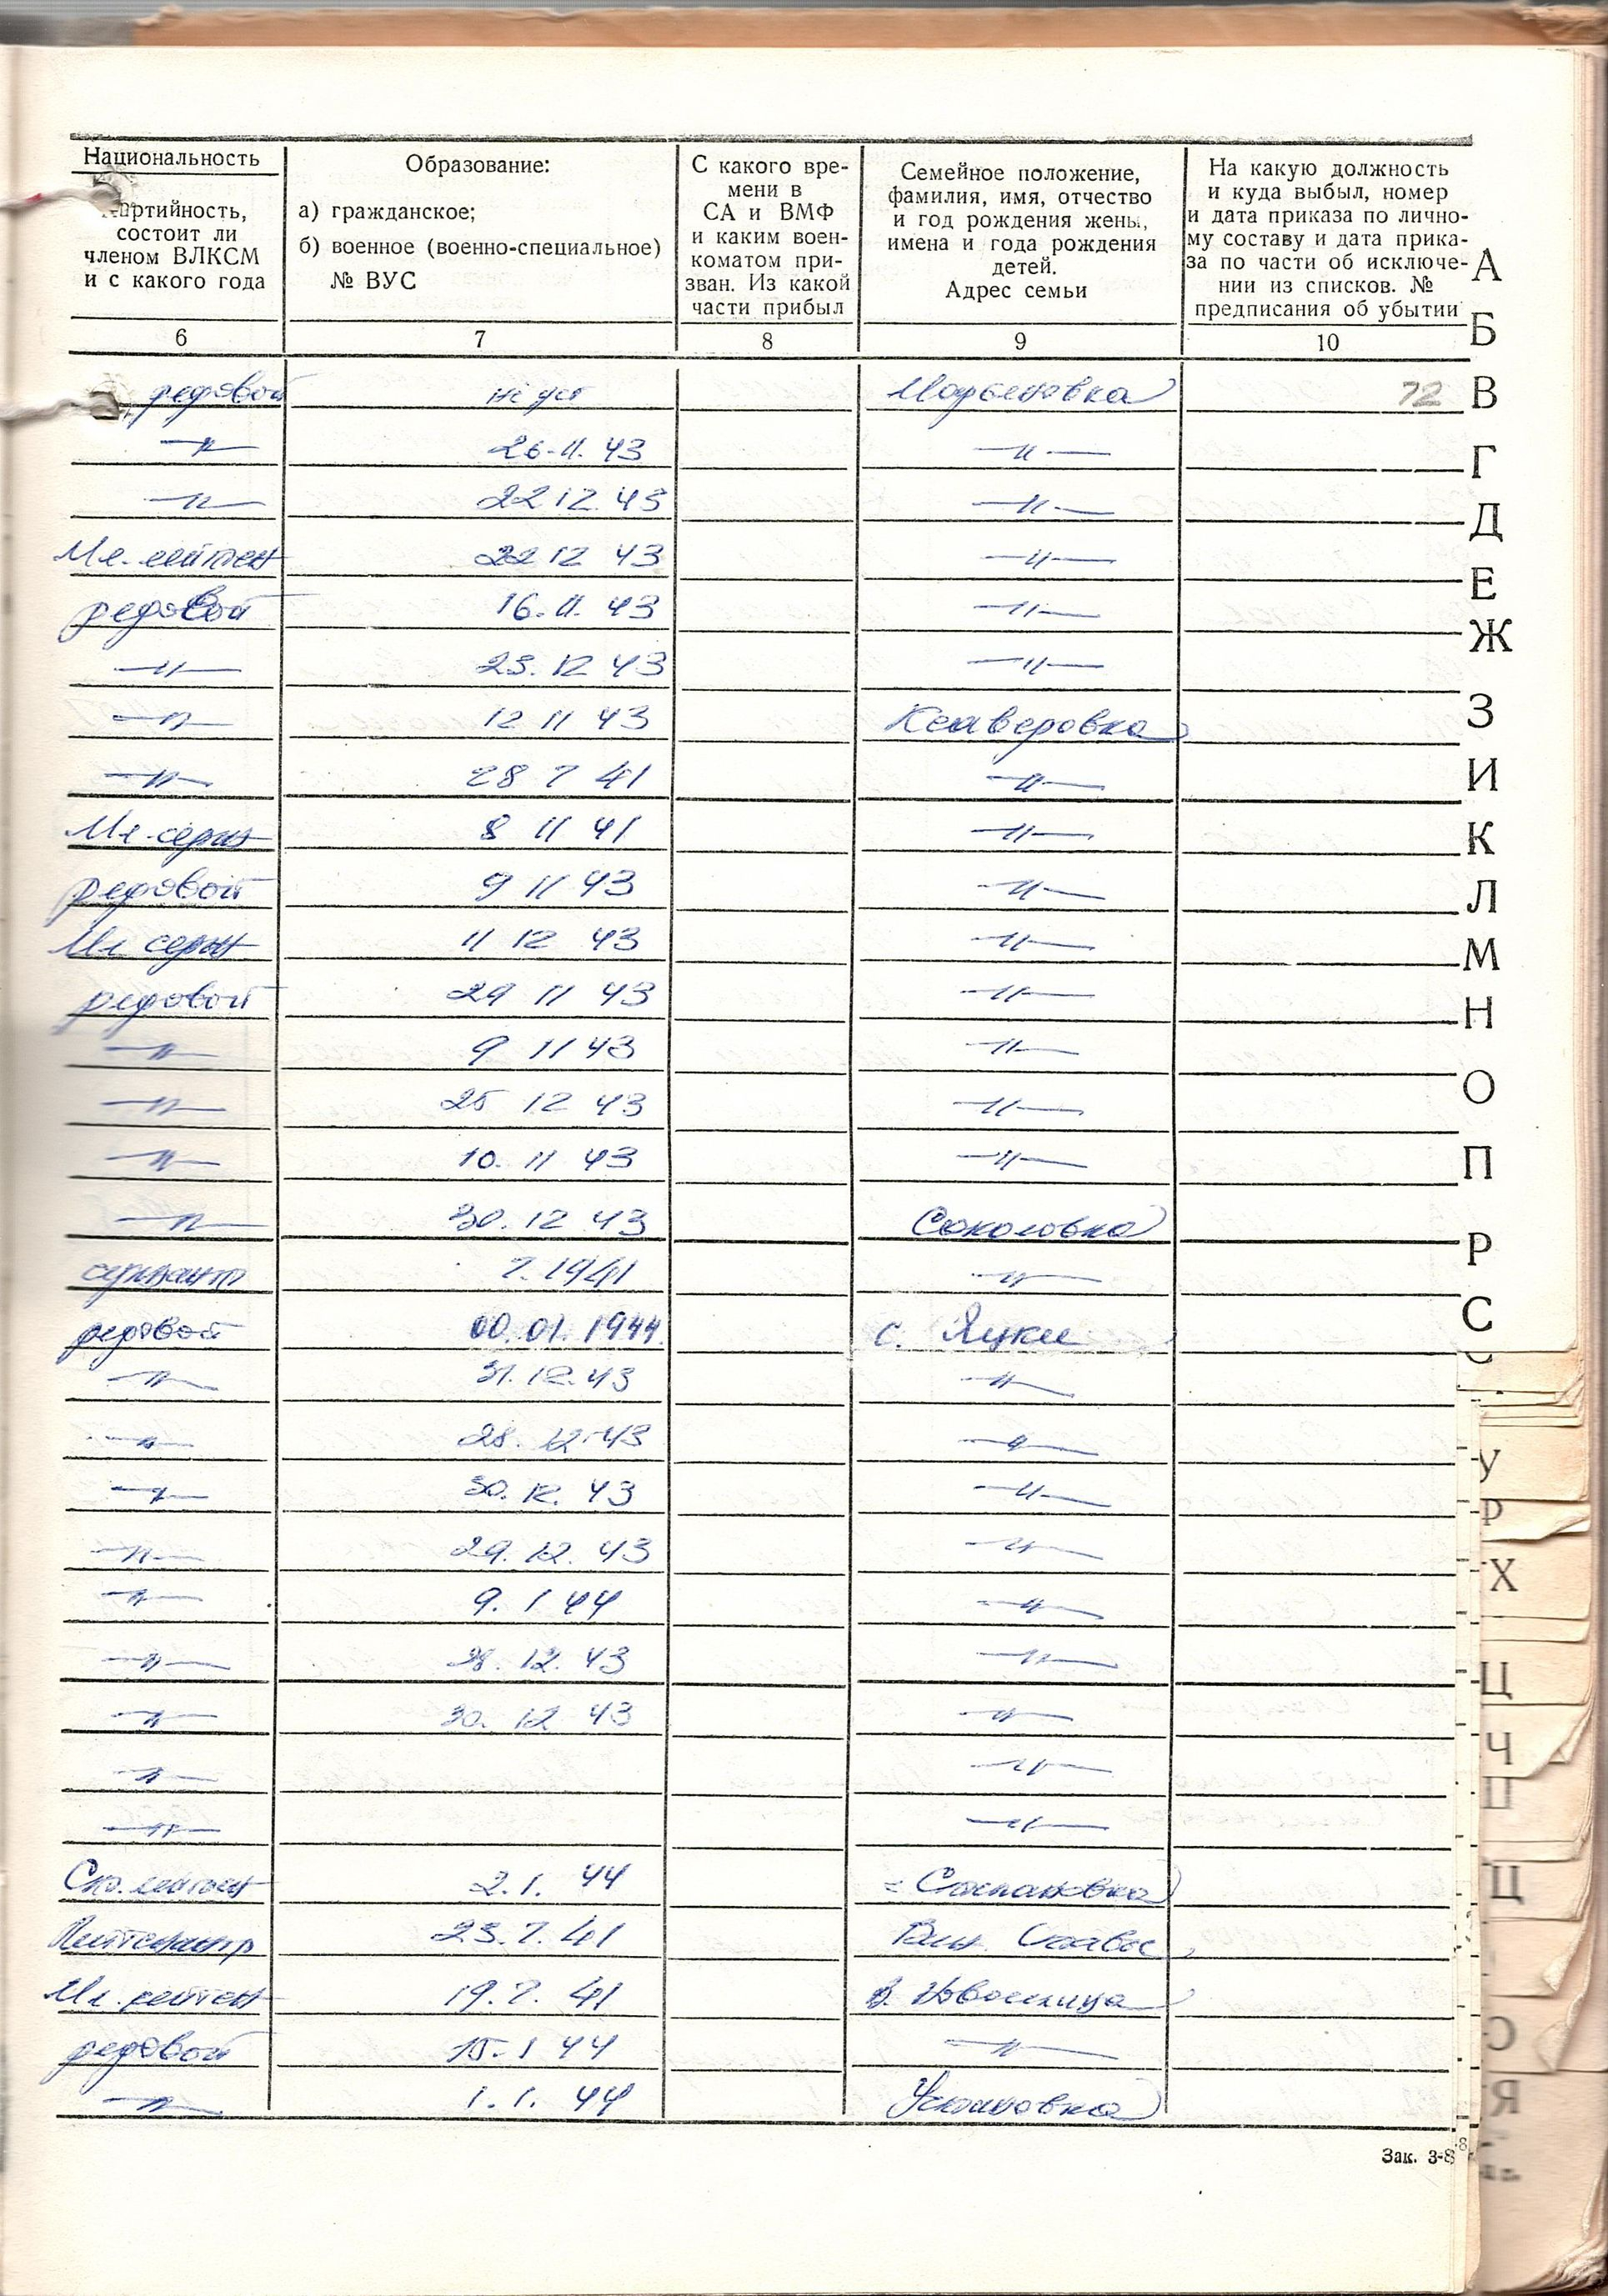 Национальность
партийность,
состоит ли
членом ВЛКСМ
и с какого года
Образование:
а) гражданское;
б) военное (военно-специальное)
№ ВУС
С какого вре-
мени в
СА и ВМФ
и каким воен-
коматом при-
зван. Из какой
части прибыл
Семейное положение,
фамилия, имя, отчество
и год рождения жены,
имена и года рождения
детей.
Адрес семьи
На какую должность
и куда выбыл, номер
и дата приказа по лично-
му составу и дата прика-
за по части об исключе-
нии из списков. №
предписания об убытии
6 7 8 9 10
рядовой не уст 72
—"— 26.11.43 —"—
—"— 22 12 43 —"—
Мл. лейтен 22 12 43 —"—
рядовой 16.11.43 —"—
—"— 23.12 43 —"—
—"— 12 11 43 Ксаверовка
—"— 28 7 41 —"—
Мл. серж 8 11 41 —"—
рядовой 9 11 43 —"—
Мл серж 11 12 43 —"—
рядовой 29 11 43 —"—
—"— 9 11 43 —"—
—"— 25 12 43 —"—
—"— 10.11 43 —"—
—"— 30.12 43 Соколовка
сержант 7.1941 —"—
рядовой 00.01.1944 с. Яцки
—"— 31.12.43 —"—
—"— 28.12.43 —"—
—"— 30.12.43 —"—
—"— 29.12.43 —"—
—"— 9.1 44 —"—
—"— 28.12.43 —"—
—"— 30.12 43 —"—
—"— —"—
—"— —"—
Ст. лейтен 2.1.44
Лейтенант 23.7.41
Мл. лейтен 19.7.41
рядовой 15.1 44 —"—
—"— 1.1.44 Устимовка
Зак. 3-8
А
Б
В
Г
Д
Е
Ж
З
И
К
Л
М
Н
О
П
Р
С
У
Х
Ц
Ч
Я